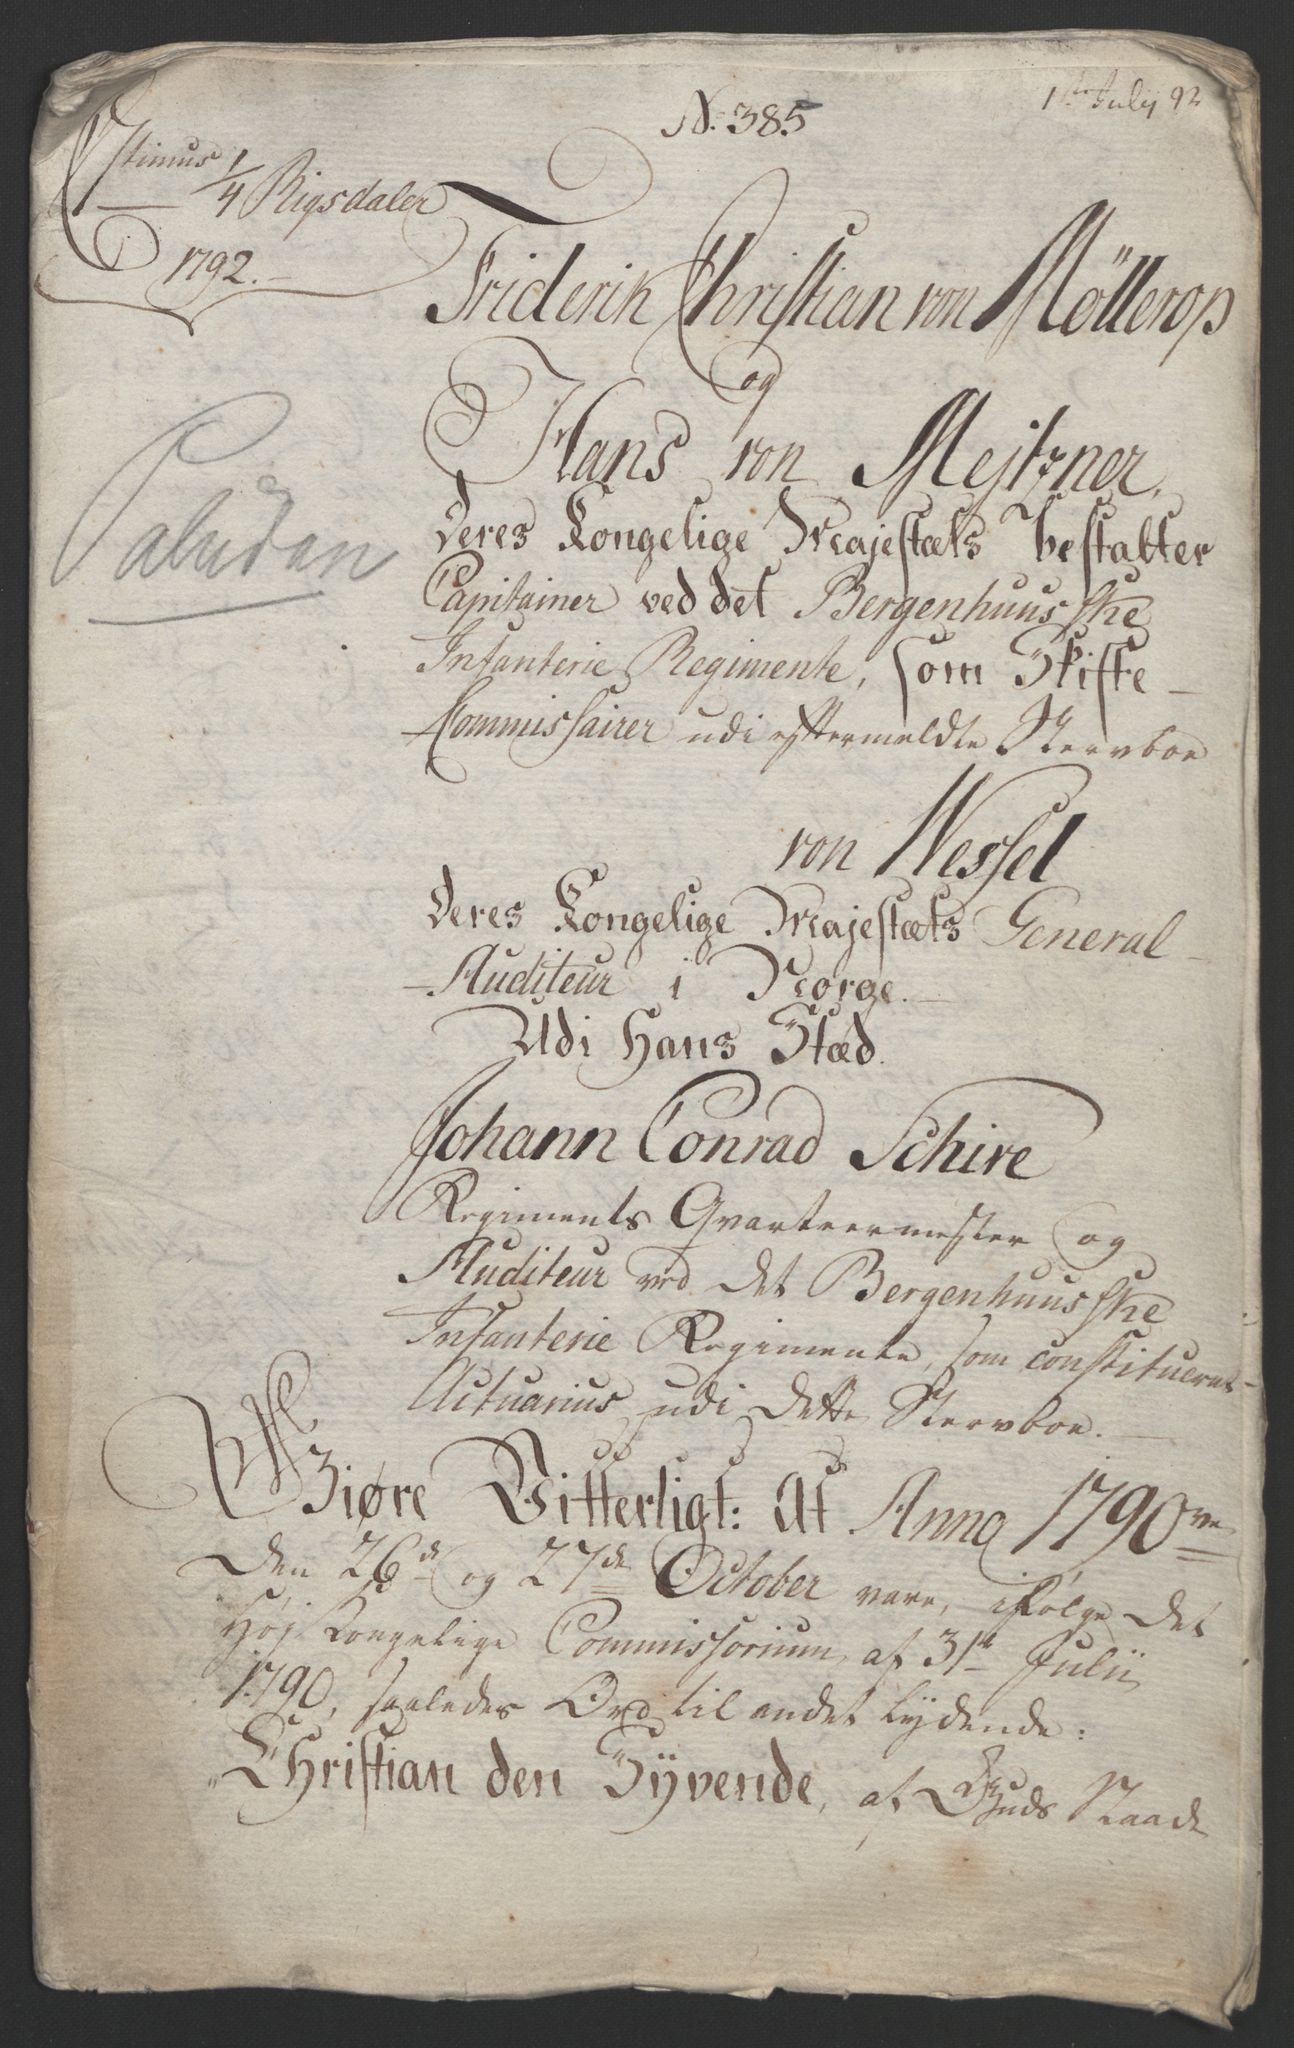 No. 385
1ste July 92
1/4 Rigsdaler
1792.
Paludan
Friderik Christian von Möllerop
og
Hans von Mejtzner,
Deres Kongelige Majestæts bestalter
Capitainer ved det Bergenhuusske
Infanterie Regimente, som Skifte
Commissairer udi eftermeldte Stervboe
von Wessel
Deres Kongelige Majestæts General
Auditeur i Norge.
Udi Hans Stæd
Johann Conrad Schive
Regiments Qvarteermester og
Auditeur ved det Bergenhuusske
Infanterie Regimente, som constitueret
Actuarius udi dette Stervboe.
Giøre Vitterligt: At Anno 1790ve
den 26de og 27de October vare, ifølge det
Høj Kongelige Commissorium af 31te Julii
1790, saaledes Ord til andet lydende:
Christian den Syvende, af Guds Naade